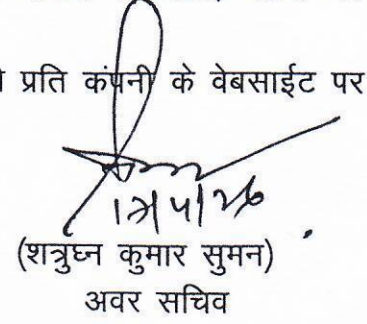 प्रति कंपनी के वेबसाईट पर
(शत्रुघ्न कुमार सुमन)
अवर सचिव